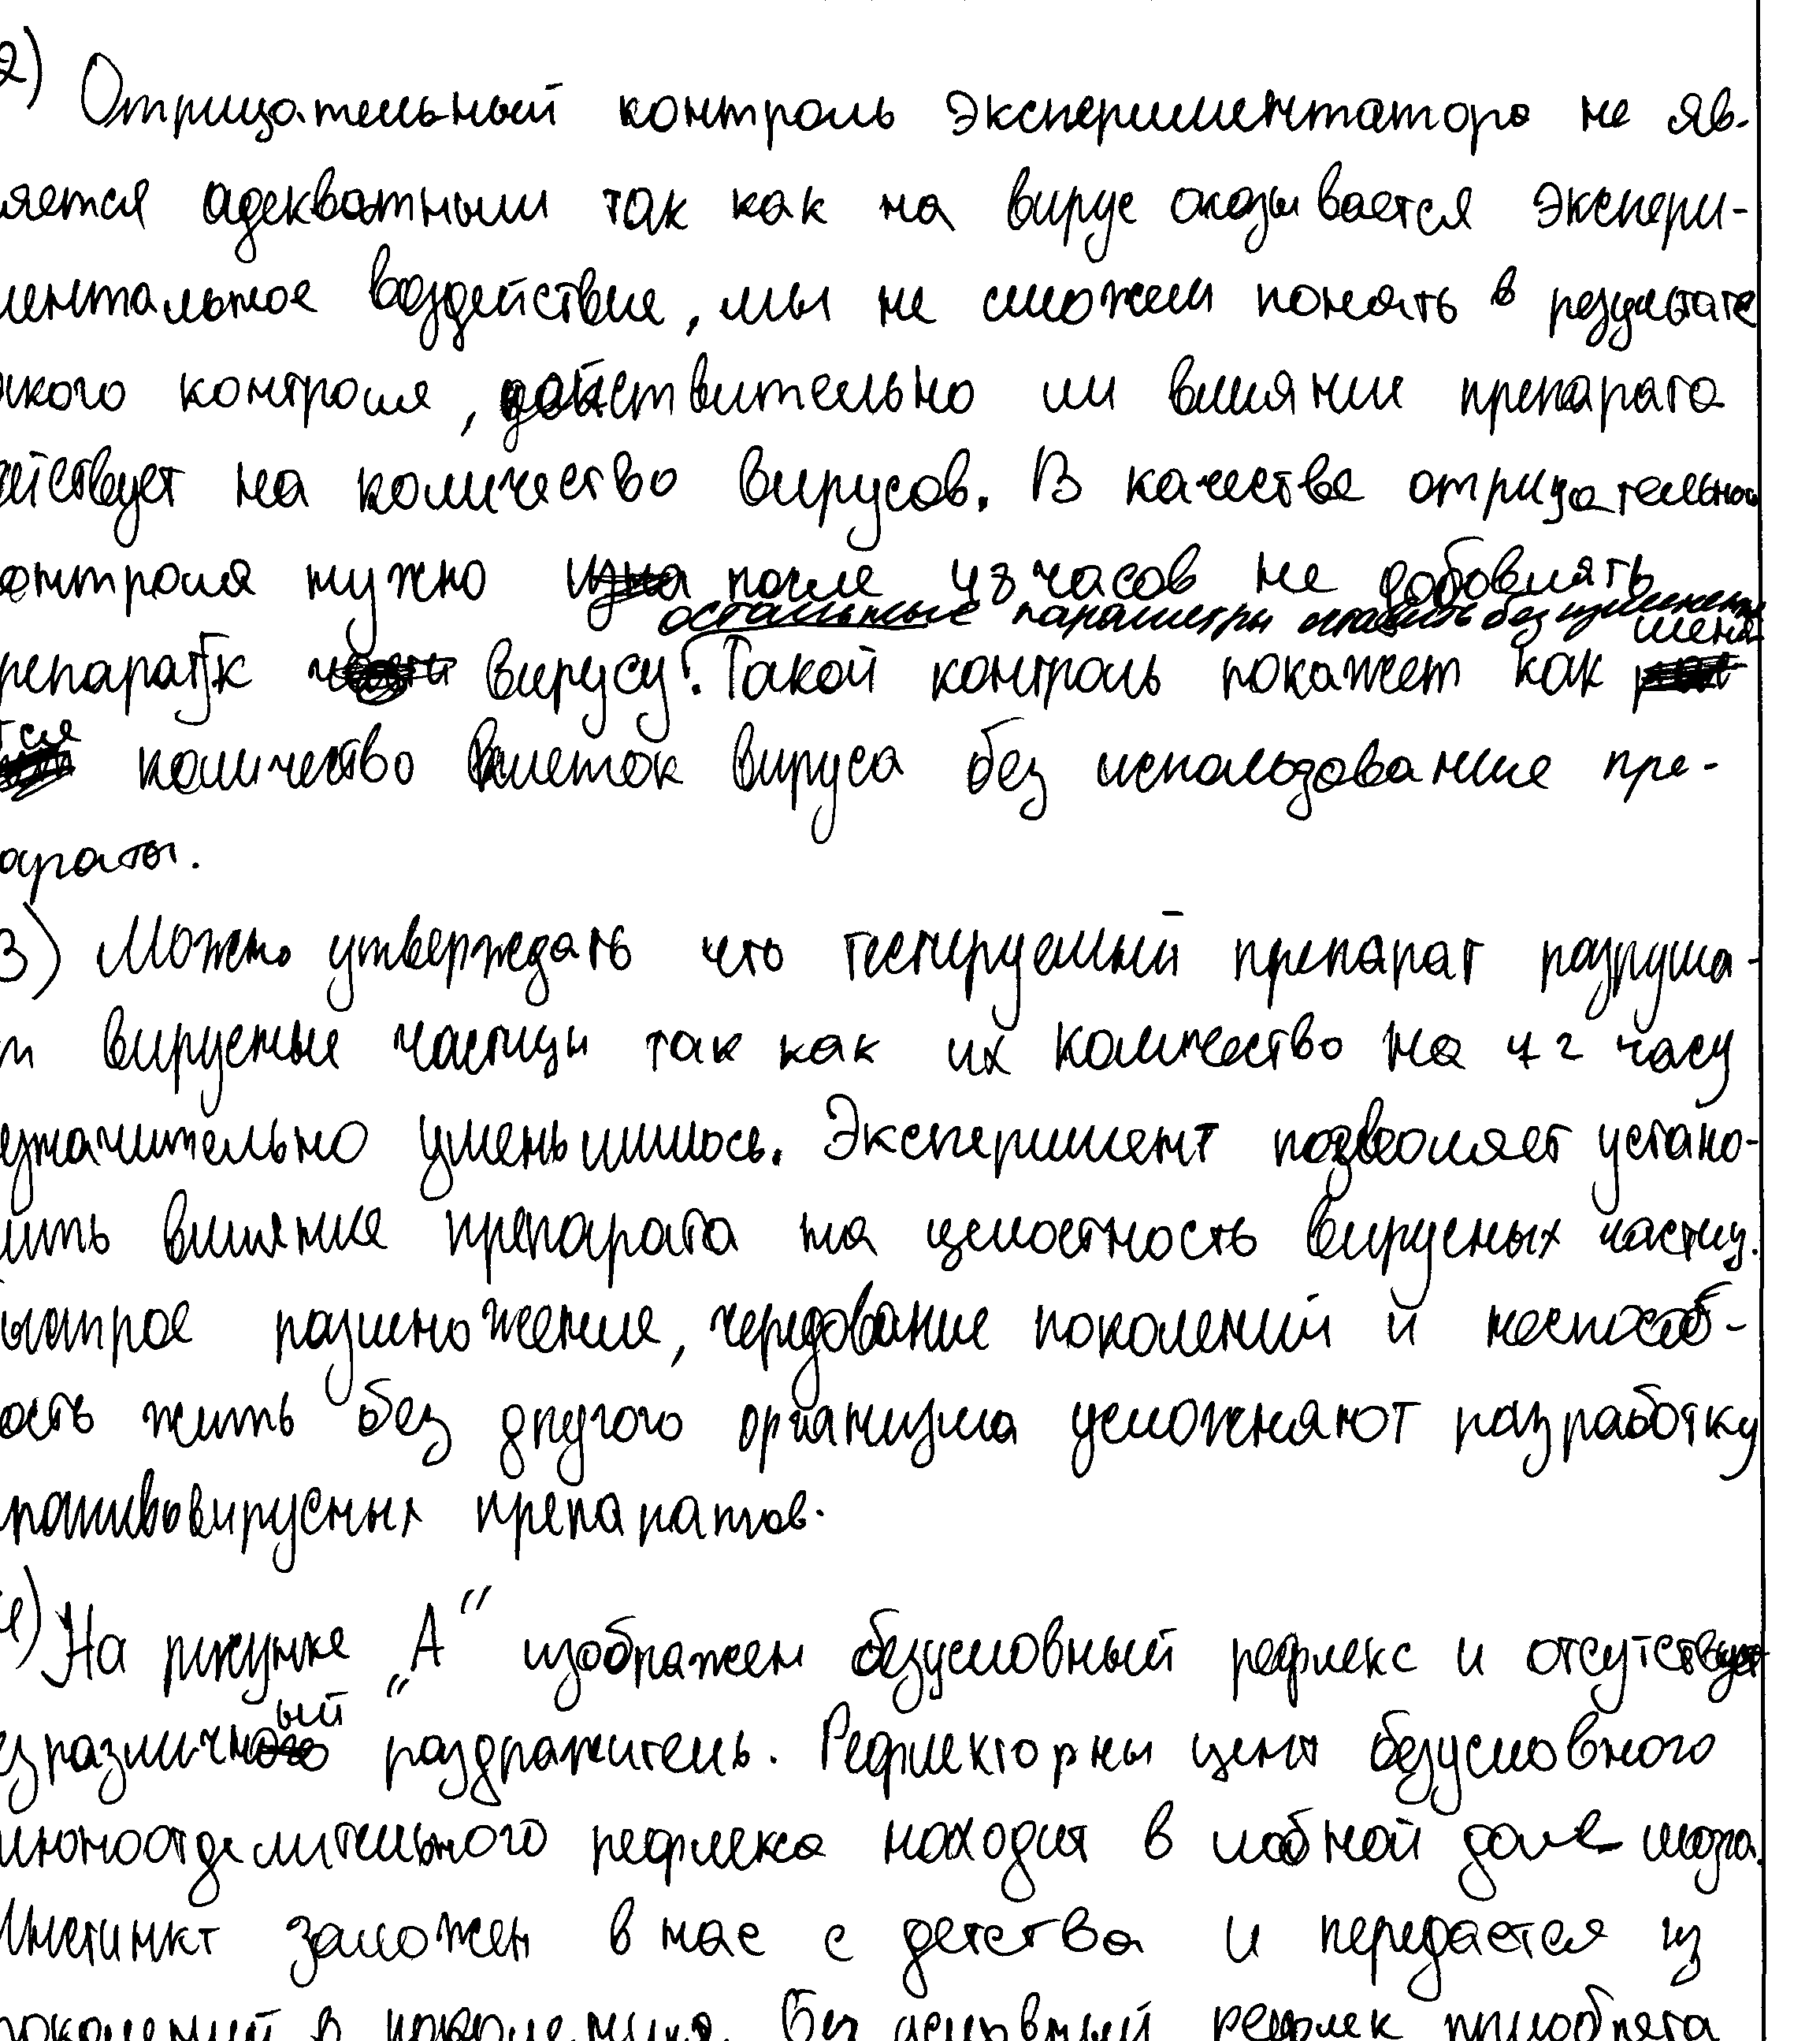 2) Отрицательный контроль экспериментатора не яв-
ляется адекватным так как на вирус оказывается экспери-
ментальное воздействие, мы не сможем понять в результате
такого контроля, действительно ли влияние препарата
действует на количество вирусов. В качестве отрицательного
контроля нужно после 48 часов не добовлять
остальные параметры оставить без изменения
препарат к вирусу. Такой контроль покажет как меня-
ется количество клеток вируса без использование пре-
параты.
3) Можно утверждать что тестируемый препарат разруша-
вирусные частицы так как их количество на 72 часу
незначительно уменьшилось. Эксперимент позволяет устано-
вить влияние препарата на целостность вирусных частиц.
Быстрое размножение, чередование поколений и неспособ-
ность жить без другого организма усложняют разработку
противовирусных препаратов.
4) На рисунке "А" изображен безусловный рефлекс и отсутствует
безразличный раздражитель. Рефлекторны цент безусловного
слюноотделительного рефлекса находит в лобной доле мозга.
Инстинкт заложен в нас с детства и передается из
поколений в поколения. Безусловный рефлек приобрета